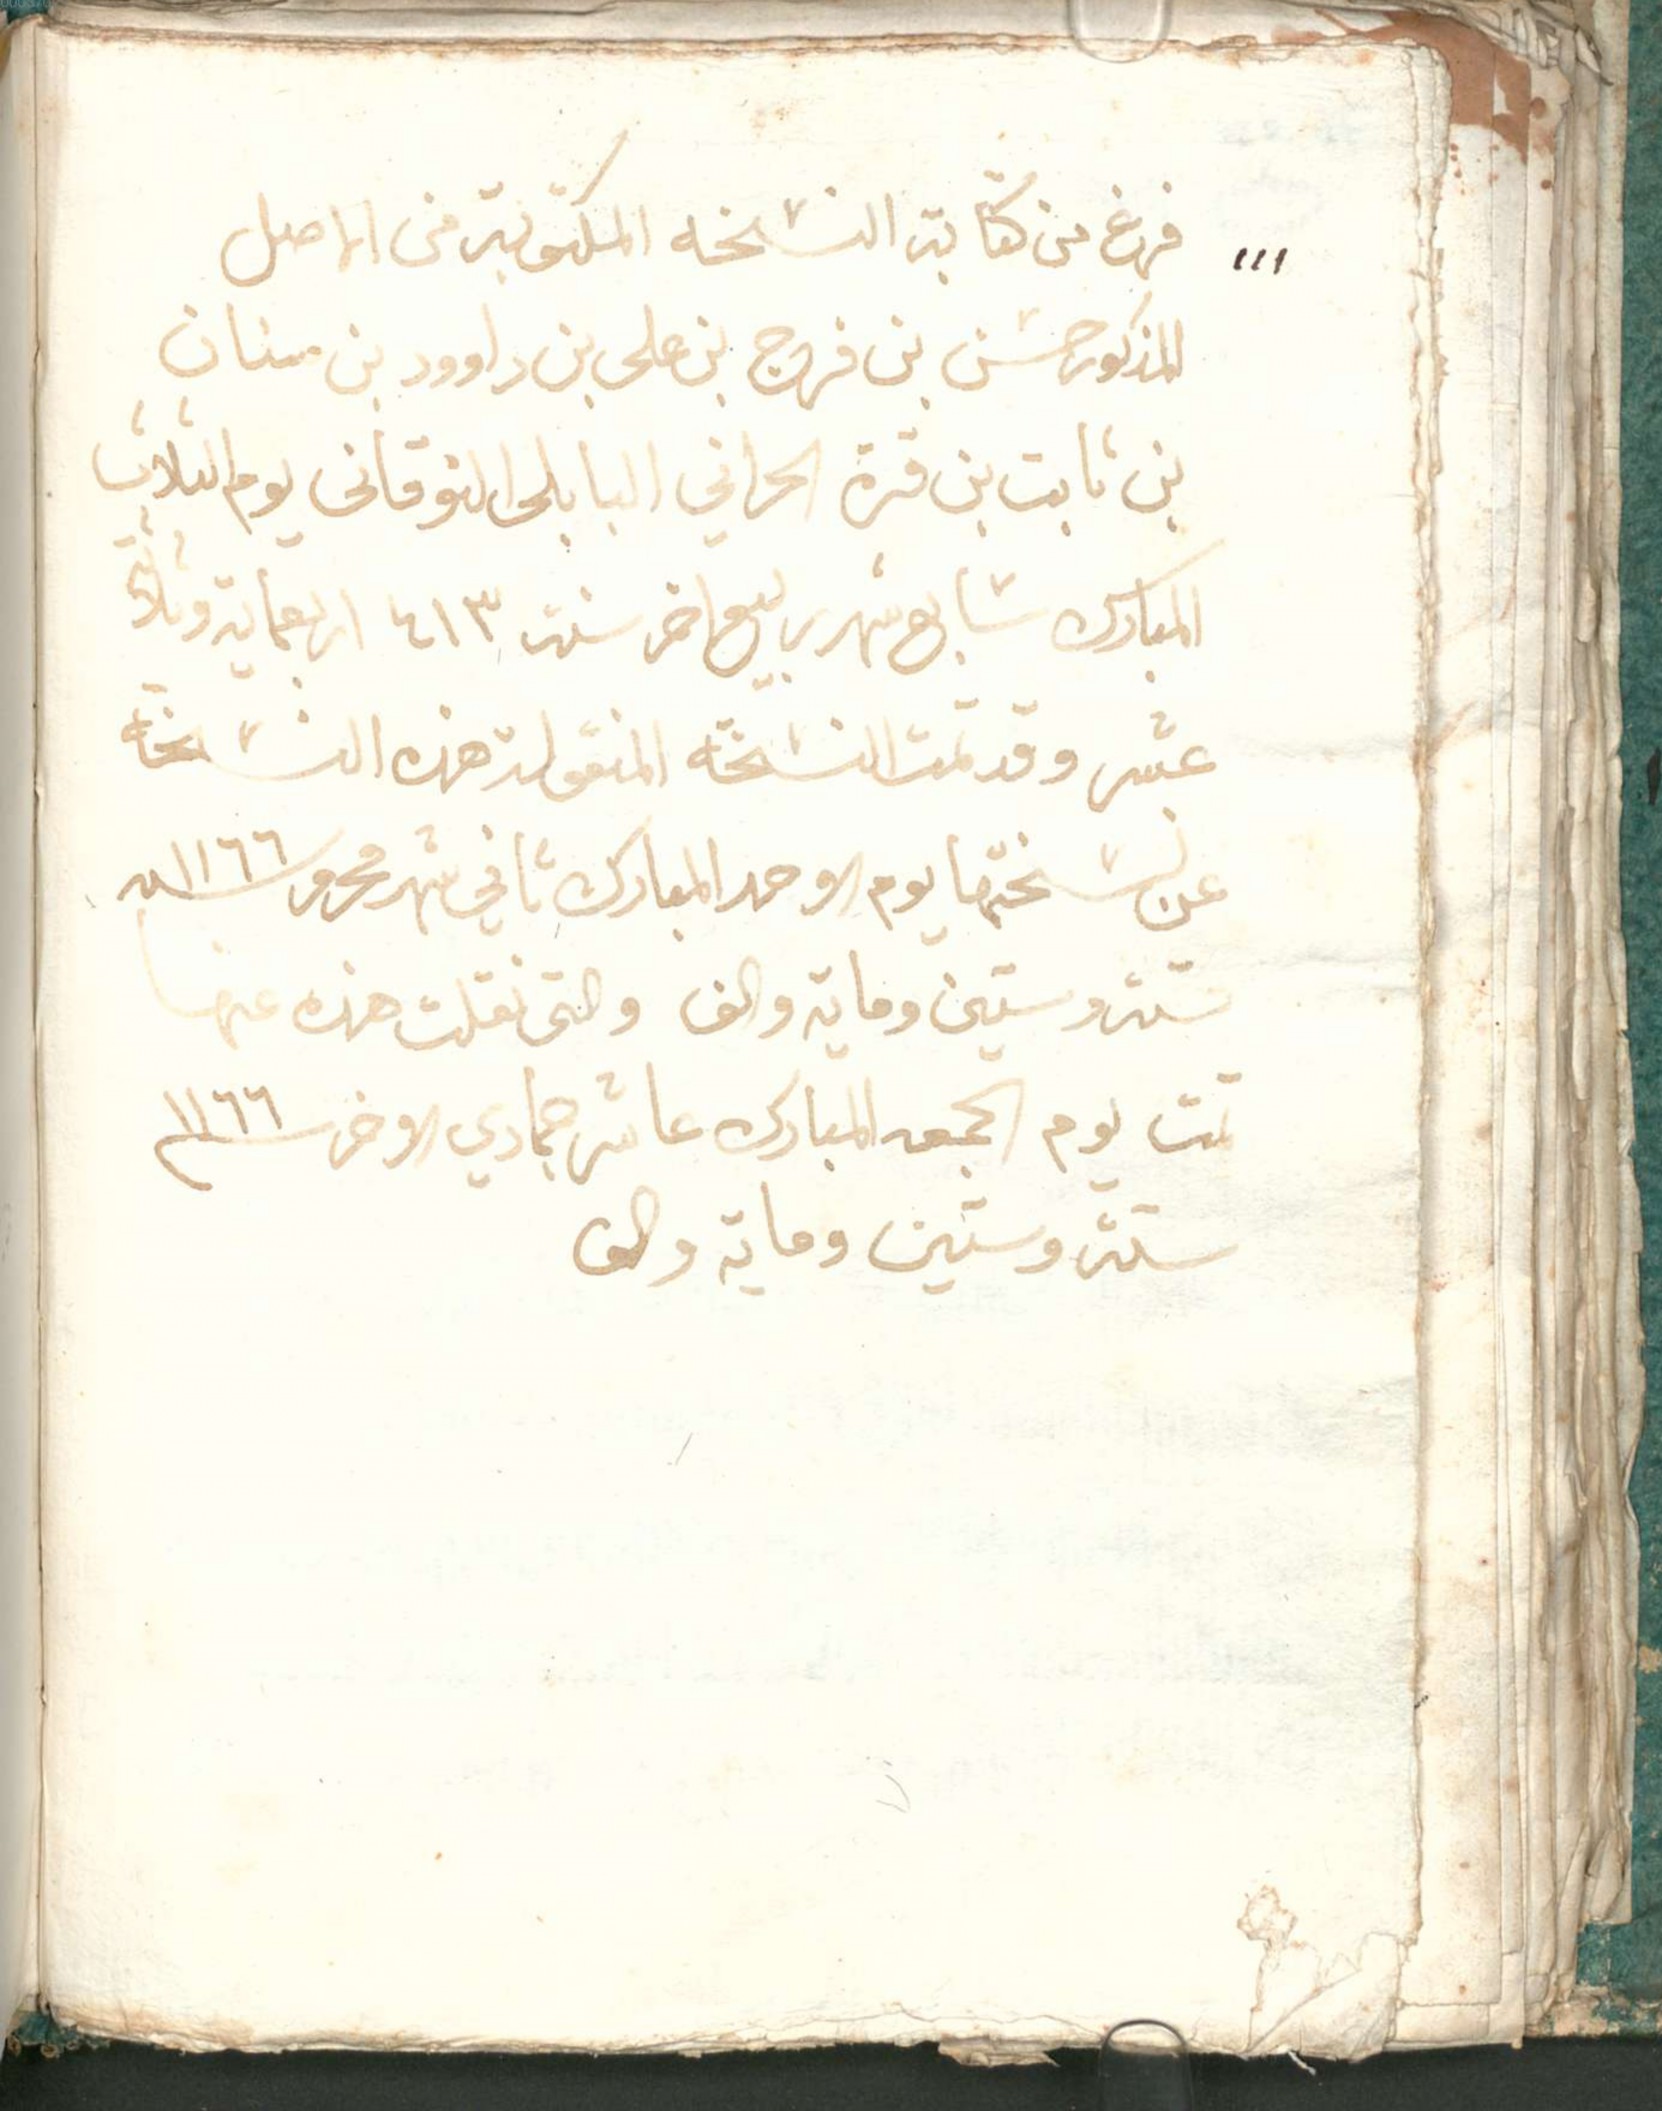 فرغ من كتابة النسخه المكتوبة من الاصل
المذكور حسن بن فرج بن علي بن داوود بن سنان
بن ثابت بن قرة الحراني البابلي النوقاني يوم الثلاث
المبارك سابع شهر ربيع اخر سنة ٤١٣ اربعماية وثلاثة
عشر وقد تمت النسخة المنقولة هذه النسخة
عن نسختها يوم الاوحد المبارك ثاني شهر محرم سنة ١١٦٦
ستة وستين وماية والف والتي نقلت هذه عنها
تمت يوم الجمعه المبارك عاشر جمادي الاوخر سنة ١١٦٦
ستة وستين وماية والف